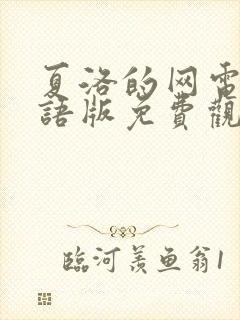 夏洛的网電
語版免費觀
臨河羨鱼翁1